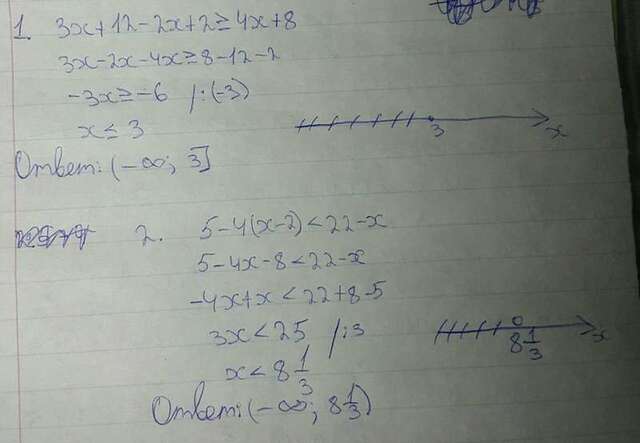 1. 3x+12-2x+2≥4x+8
3x-2x-4x≥8-12-2
-3x≥-6 /:(-3)
x≤3
3 x
Ответ: (-∞; 3]
2. 5-4(x-2)<22-x
5-4x-8<22-x
-4x+x<22+8-5
3x<25 /:3
x<8 1/3
8 1/3 x
Ответ: (-∞; 8 1/3)